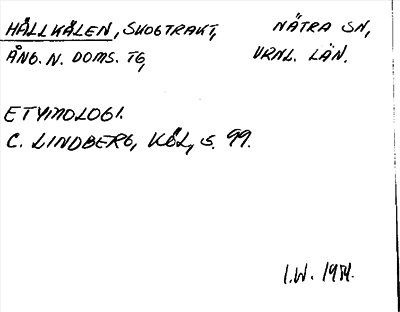 HÅLLKÅLEN, SKOGTRAKT, NÄTRA SN,
ÅNG. N. DOMS. TG, VRNL. LÄN.
ETYMOLOGI.
C. LINDBERG, KÖL, S. 99.
I.W. 1984.